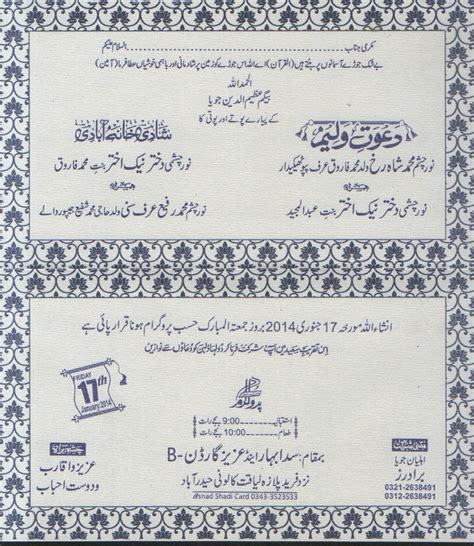 مکرمی جناب ........ السلام علیکم
بے شک جوڑے آسمانوں پر بنتے ہیں (القرآن) اے اللہ اس جوڑے کو زمین پر شادمانی اور باہمی خوشیاں عطا فرما (آمین)
الحمدللہ
بیگم عظیم الدین جویا
کے پیارے پوتے اور پوتی کا
دعوت ولیمہ
نور چشم محمد شاہ رخ ولد محمد فاروق عرف پھٹیکیدار
ہمراہ
نور چشمی دختر نیک اختر بنت عبدالمجید
شادی خانہ آبادی
نور چشمی دختر نیک اختر بنت محمد فاروق
ہمراہ
نور چشم محمد رفیع عرف سنی ولد حاجی محمد شفیع جبھپور والے
انشاء اللہ مورخہ 17 جنوری 2014 بروز جمعتہ المبارک حسب پروگرام ہونا قرار پائی ہے
اس تقریب سعید میں آپ شرکت فرما کر دولہا دلہن کو دعاؤں سے نوازیں
FRIDAY
17th
January, 2014
پروگرام
استقبالیہ ----- 9:00 بجے رات
طعام ----- 10:00 بجے رات
بمقام: سدا بہار اینڈ عزیز گارڈن -B
نزد فرید پلازہ لیاقت کالونی حیدرآباد
متمنی شرکت
اہلیان جویا
برادرز
0321-2638491
0312-2638491
چشم براہ
عزیز و اقارب
و دوست احباب
Asnad Shadi Card 0343-3523533